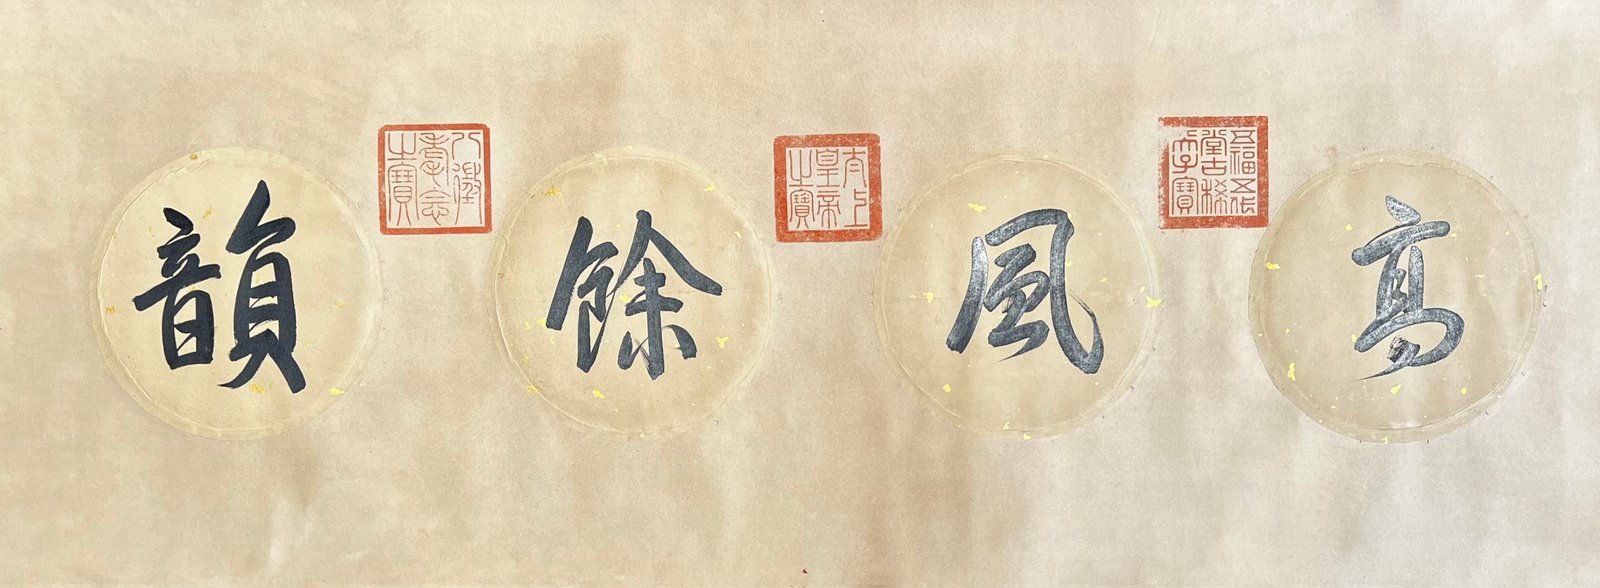 高風餘韻
五福五代
堂古稀
天子寶
太上
皇帝
之寶
八徵
耄念
之寶